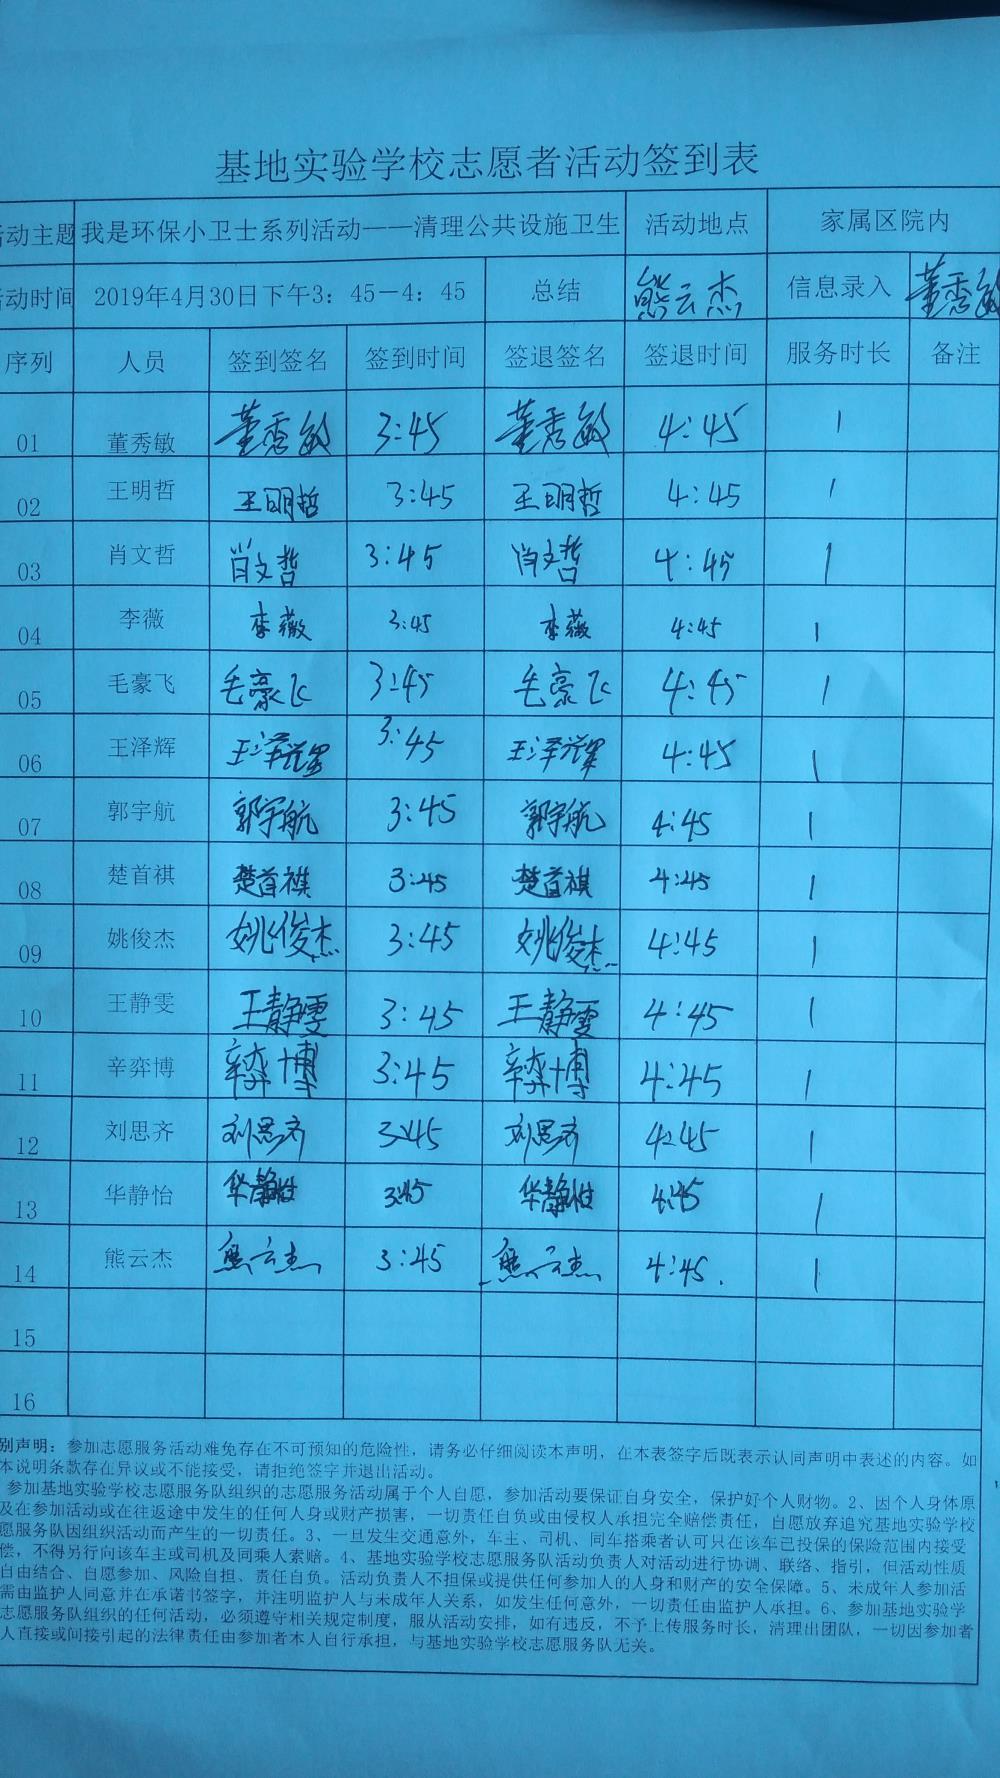 基地实验学校志愿者活动签到表
活动主题 我是环保小卫士系列活动——清理公共设施卫生 活动地点 家属区院内
活动时间 2019年4月30日下午3：45-4：45 总结 熊云杰 信息录入 董秀敏
序列 人员 签到签名 签到时间 签退签名 签退时间 服务时长 备注
01 董秀敏 董秀敏 3:45 董秀敏 4:45 1
02 王明哲 王明哲 3:45 王明哲 4:45 1
03 肖文哲 肖文哲 3:45 肖文哲 4:45 1
04 李薇 李薇 3:45 李薇 4:45 1
05 毛豪飞 毛豪飞 3:45 毛豪飞 4:45 1
06 王泽辉 王泽辉 3:45 王泽辉 4:45 1
07 郭宇航 郭宇航 3:45 郭宇航 4:45 1
08 楚首祺 楚首祺 3:45 楚首祺 4:45 1
09 姚俊杰 姚俊杰 3:45 姚俊杰 4:45 1
10 王静雯 王静雯 3:45 王静雯 4:45 1
11 辛弈博 辛弈博 3:45 辛弈博 4:45 1
12 刘思齐 刘思齐 3:45 刘思齐 4:45 1
13 华静怡 华静怡 3:45 华静怡 4:45 1
14 熊云杰 熊云杰 3:45 熊云杰 4:45. 1
15
16
别声明：参加志愿服务活动难免存在不可预知的危险性，请务必仔细阅读本声明，在本表签字后既表示认同声明中表述的内容。如
本说明条款存在异议或不能接受，请拒绝签字并退出活动。
参加基地实验学校志愿服务队组织的志愿服务活动属于个人自愿，参加活动要保证自身安全，保护好个人财物。2、因个人身体原
及在参加活动或在往返途中发生的任何人身或财产损害，一切责任自负或由侵权人承担完全赔偿责任，自愿放弃追究基地实验学校
愿服务队因组织活动而产生的一切责任。3、一旦发生交通意外，车主、司机、同车搭乘者认可只在该车已投保的保险范围内接受
偿，不得另行向该车主或司机及同乘人索赔。4、基地实验学校志愿服务队活动负责人对活动进行协调、联络、指引，但活动性质
自由结合、自愿参加、风险自担、责任自负。活动负责人不担保或提供任何参加人的人身和财产的安全保障。5、未成年人参加活
需由监护人同意并在承诺书签字，并注明监护人与未成年人关系，如发生任何意外，一切责任由监护人承担。6、参加基地实验学
志愿服务队组织的任何活动，必须遵守相关规定制度，服从活动安排，如有违反，不予上传服务时长，清理出团队，一切因参加者
人直接或间接引起的法律责任由参加者本人自行承担，与基地实验学校志愿服务队无关。